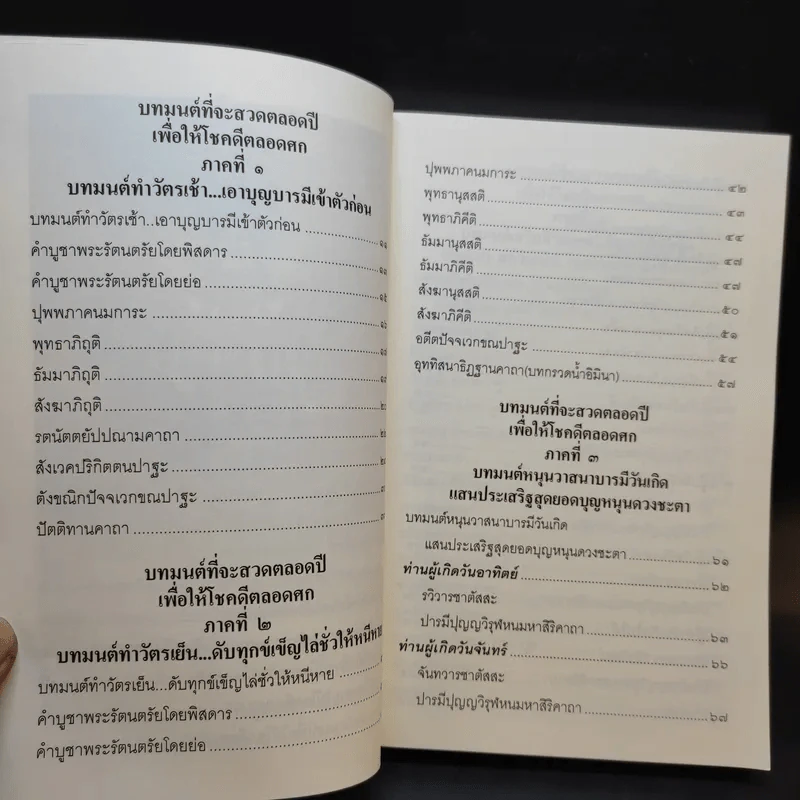 บทมนต์ที่จะสวดตลอดปี
เพื่อให้โชคดีตลอดศก
ภาคที่ ๑
บทมนต์ทำวัตรเช้า...เอาบุญบารมีเข้าตัวก่อน
บทมนต์ทำวัตรเช้า..เอาบุญบารมีเข้าตัวก่อน
คำบูชาพระรัตนตรัยโดยพิสดาร
คำบูชาพระรัตนตรัยโดยย่อ ๑๕
ปุพพภาคนมการะ ๑๖
พุทธาภิถุติ
ธัมมาภิถุติ
สังฆาภิถุติ
รตนัตตยัปปณามคาถา
สังเวคปริกิตตนปาฐะ
ตังขณิกปัจจเวกขณปาฐะ
ปัตติทานคาถา
บทมนต์ที่จะสวดตลอดปี
เพื่อให้โชคดีตลอดศก
ภาคที่ ๒
บทมนต์ทำวัตรเย็น...ดับทุกข์เข็ญไล่ชั่วให้หนีหาย
บทมนต์ทำวัตรเย็น...ดับทุกข์เข็ญไล่ชั่วให้หนีหาย
คำบูชาพระรัตนตรัยโดยพิสดาร
คำบูชาพระรัตนตรัยโดยย่อ
ปุพพภาคนมการะ ๔๒
พุทธานุสสติ ๔๓
พุทธาภิคีติ ๔๔
ธัมมานุสสติ ๔๗
ธัมมาภิคีติ ๔๗
สังฆานุสสติ ๕๐
สังฆาภิคีติ ๕๑
อตีตปัจจเวกขณปาฐะ ๕๔
อุททิสนาธิฏฐานคาถา(บทกรวดน้ำอิมินา) ๕๗
บทมนต์ที่จะสวดตลอดปี
เพื่อให้โชคดีตลอดศก
ภาคที่ ๓
บทมนต์หนุนวาสนาบารมีวันเกิด
แสนประเสริฐสุดยอดบุญหนุนดวงชะตา
บทมนต์หนุนวาสนาบารมีวันเกิด
แสนประเสริฐสุดยอดบุญหนุนดวงชะตา ๖๑
ท่านผู้เกิดวันอาทิตย์ ๖๒
รวิวารชาตัสสะ
ปารมีปุญญวิรุฬหนมหาสิริคาถา ๖๓
ท่านผู้เกิดวันจันทร์ ๖๖
จันทวารชาตัสสะ
ปารมีปุญญวิรุฬหนมหาสิริคาถา ๖๗